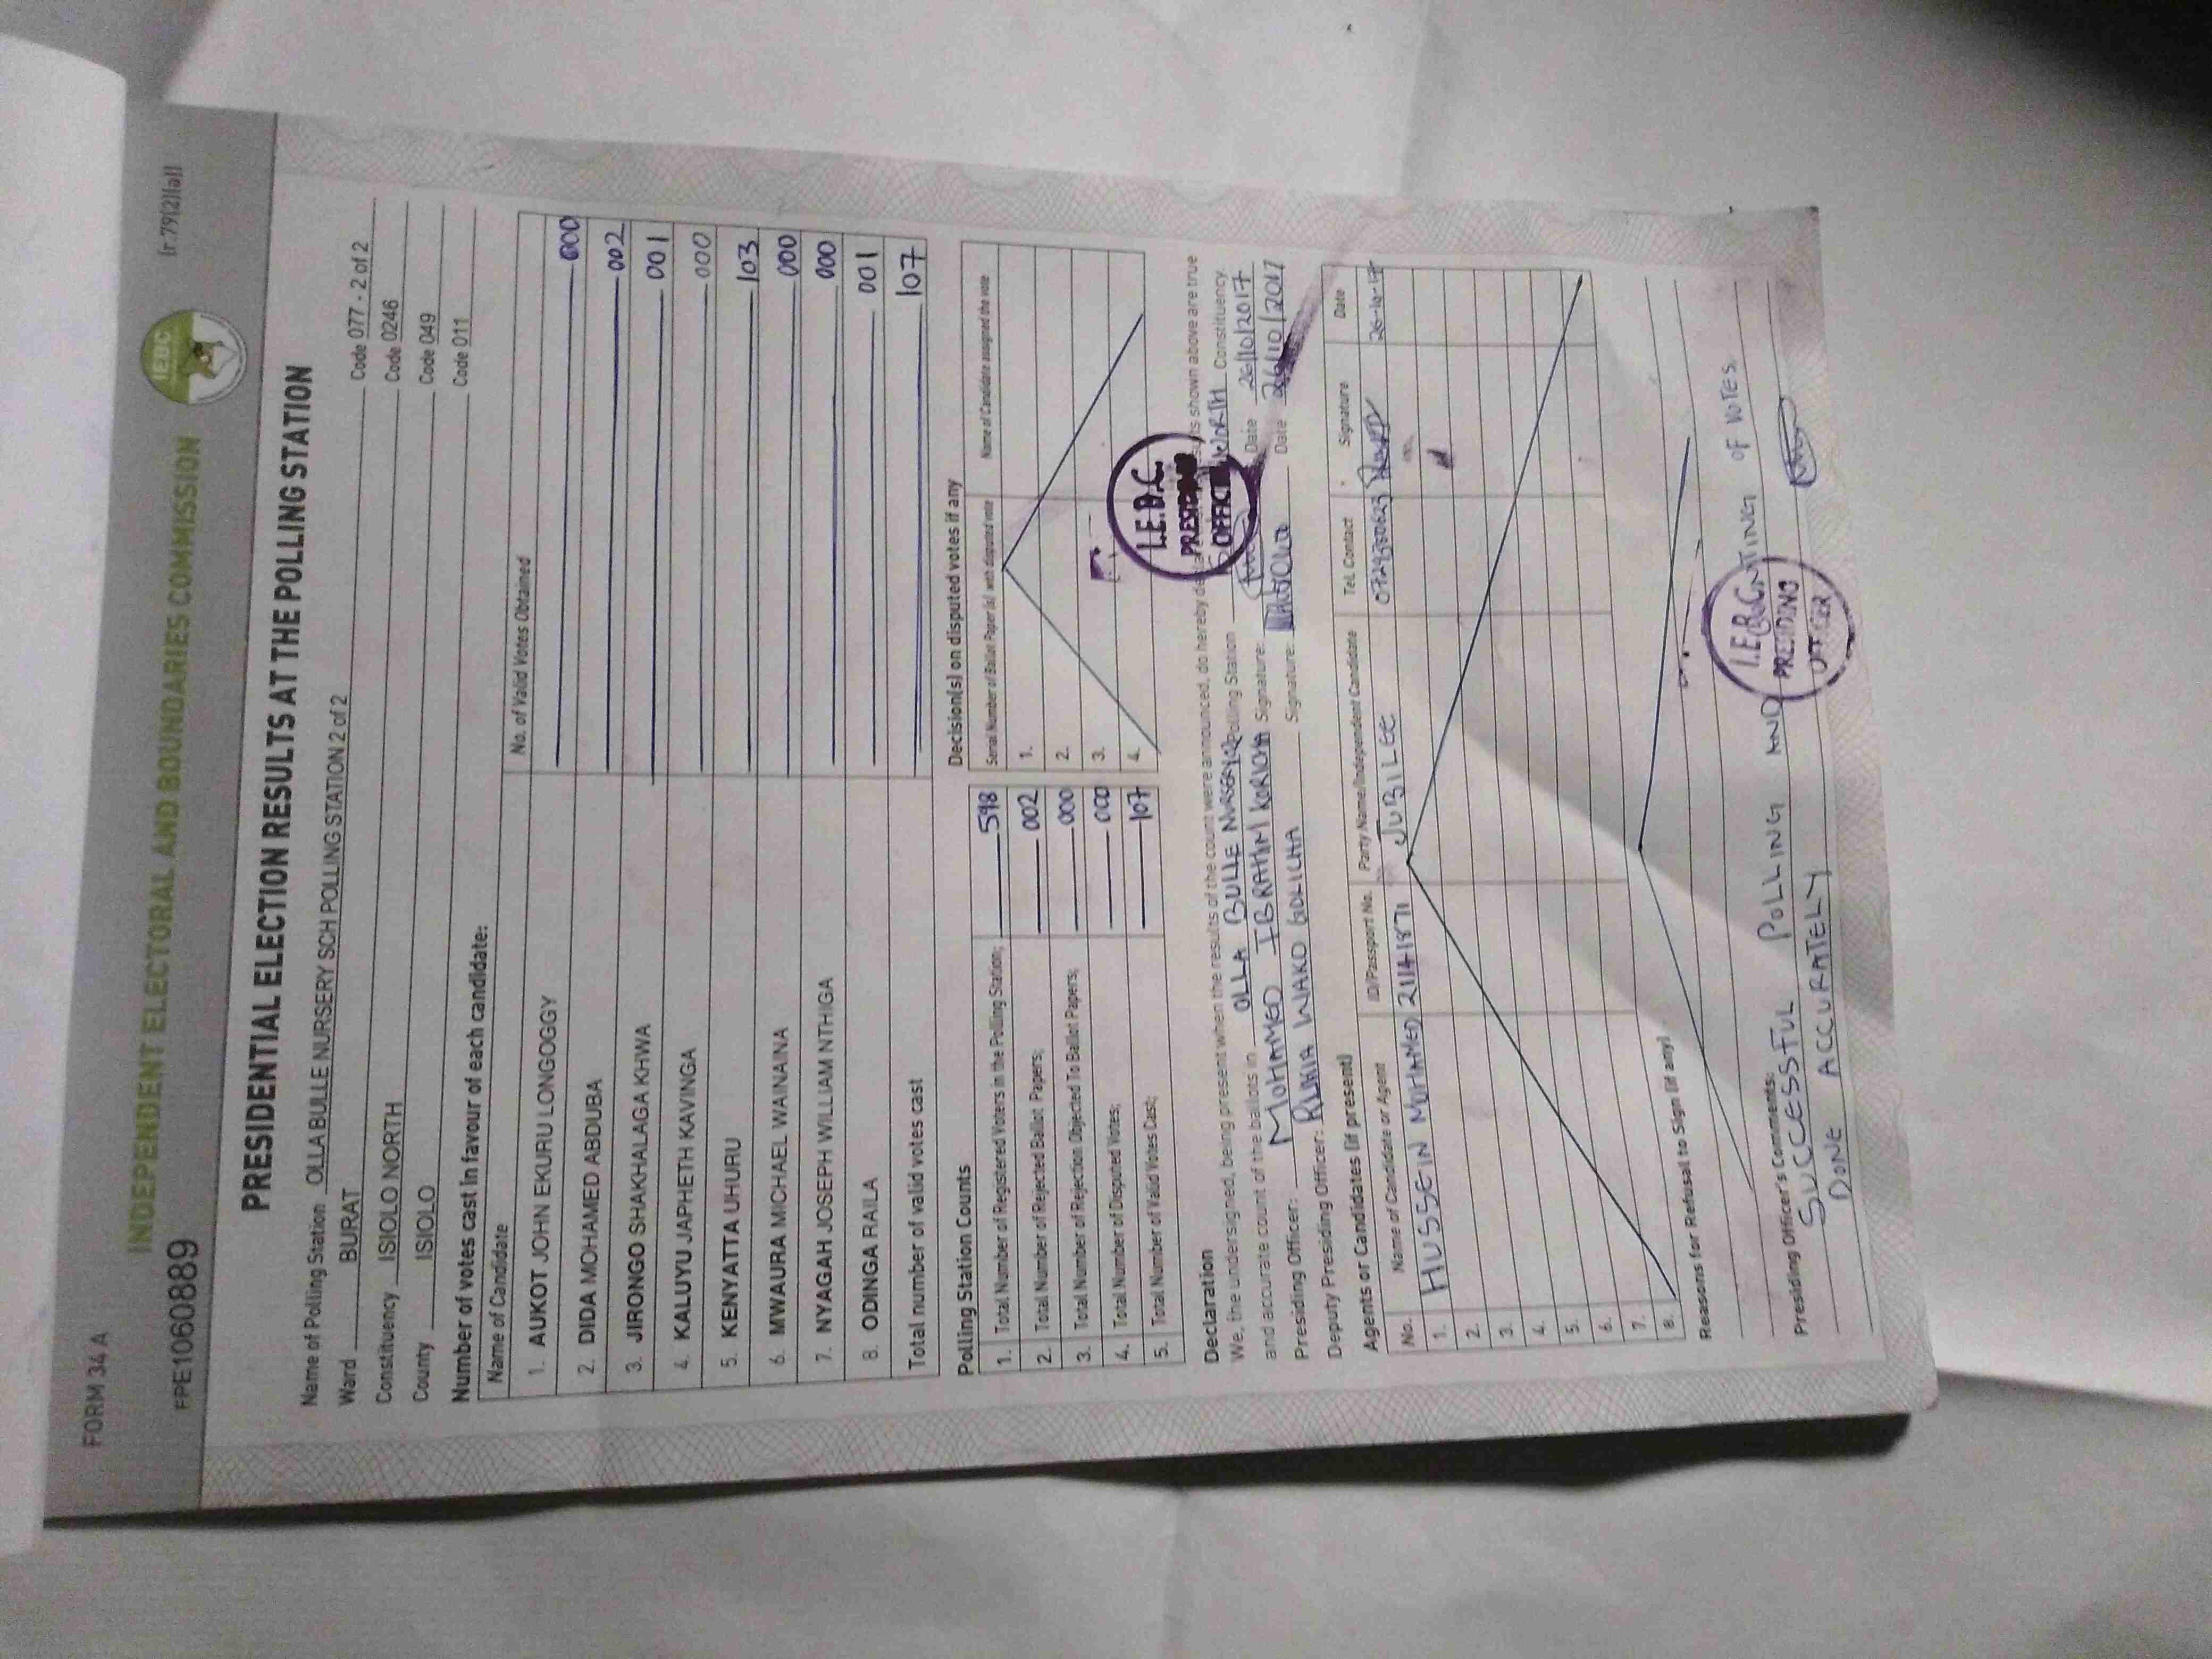 FORM 34 A
INDEPENDENT ELECTORAL AND BOUNDARIES COMMISSION
IEBC
(r.79(2)(a))
FPE1060889
PRESIDENTIAL ELECTION RESULTS AT THE POLLING STATION
Name of Polling Station OLLA BULLE NURSERY SCH POLLING STATION 2 of 2 Code 077 - 2 of 2
Ward BURAT Code 0246
Constituency ISIOLO NORTH Code 049
County ISIOLO Code 011
Number of votes cast in favour of each candidate:
Name of Candidate No. of Valid Votes Obtained
1. AUKOT JOHN EKURU LONGOGGY 000
2. DIDA MOHAMED ABDUBA 002
3. JIRONGO SHAKHALAGA KHWA 001
4. KALUYU JAPHETH KAVINGA 000
5. KENYATTA UHURU 103
6. MWAURA MICHAEL WAINAINA 000
7. NYAGAH JOSEPH WILLIAM NTHIGA 000
8. ODINGA RAILA 001
Total number of valid votes cast 107
Polling Station Counts
1. Total Number of Registered Voters in the Polling Station; 598
2. Total Number of Rejected Ballot Papers; 002
3. Total Number of Rejection Objected To Ballot Papers; 000
4. Total Number of Disputed Votes; 000
5. Total Number of Valid Votes Cast; 107
Decision(s) on disputed votes if any
Serial Number of Ballot Paper (s) with disputed vote Name of Candidate assigned the vote
1.
2.
3.
4.
I.E.B.C.
PRESIDING
OFFICER
Declaration
We, the undersigned, being present when the results of the count were announced, do hereby shown above are true
and accurate count of the ballots in OLLA BULLE NURSERY Polling Station NORTH Constituency.
Presiding Officer: MOHAMED IBRAHIM Signature: Date 26/10/2017
Deputy Presiding Officer: RUKIA WAKO GOLICHA Signature: Date 26/10/2017
Agents or Candidates (if present)
No. Name of Candidate or Agent ID/Passport No. Party Name/Independent Candidate Tel. Contact Signature Date
1. HUSSEIN MOHAMED 21141871 JUBILEE 26-10-17
2.
3.
4.
5.
6.
7.
8.
Reasons for Refusal to Sign (if any)
Presiding Officer's Comments:
SUCCESSFUL POLLING AND COUNTING OF VOTES
DONE ACCURATELY
I.E.B.C.
PRESIDING
OFFICER